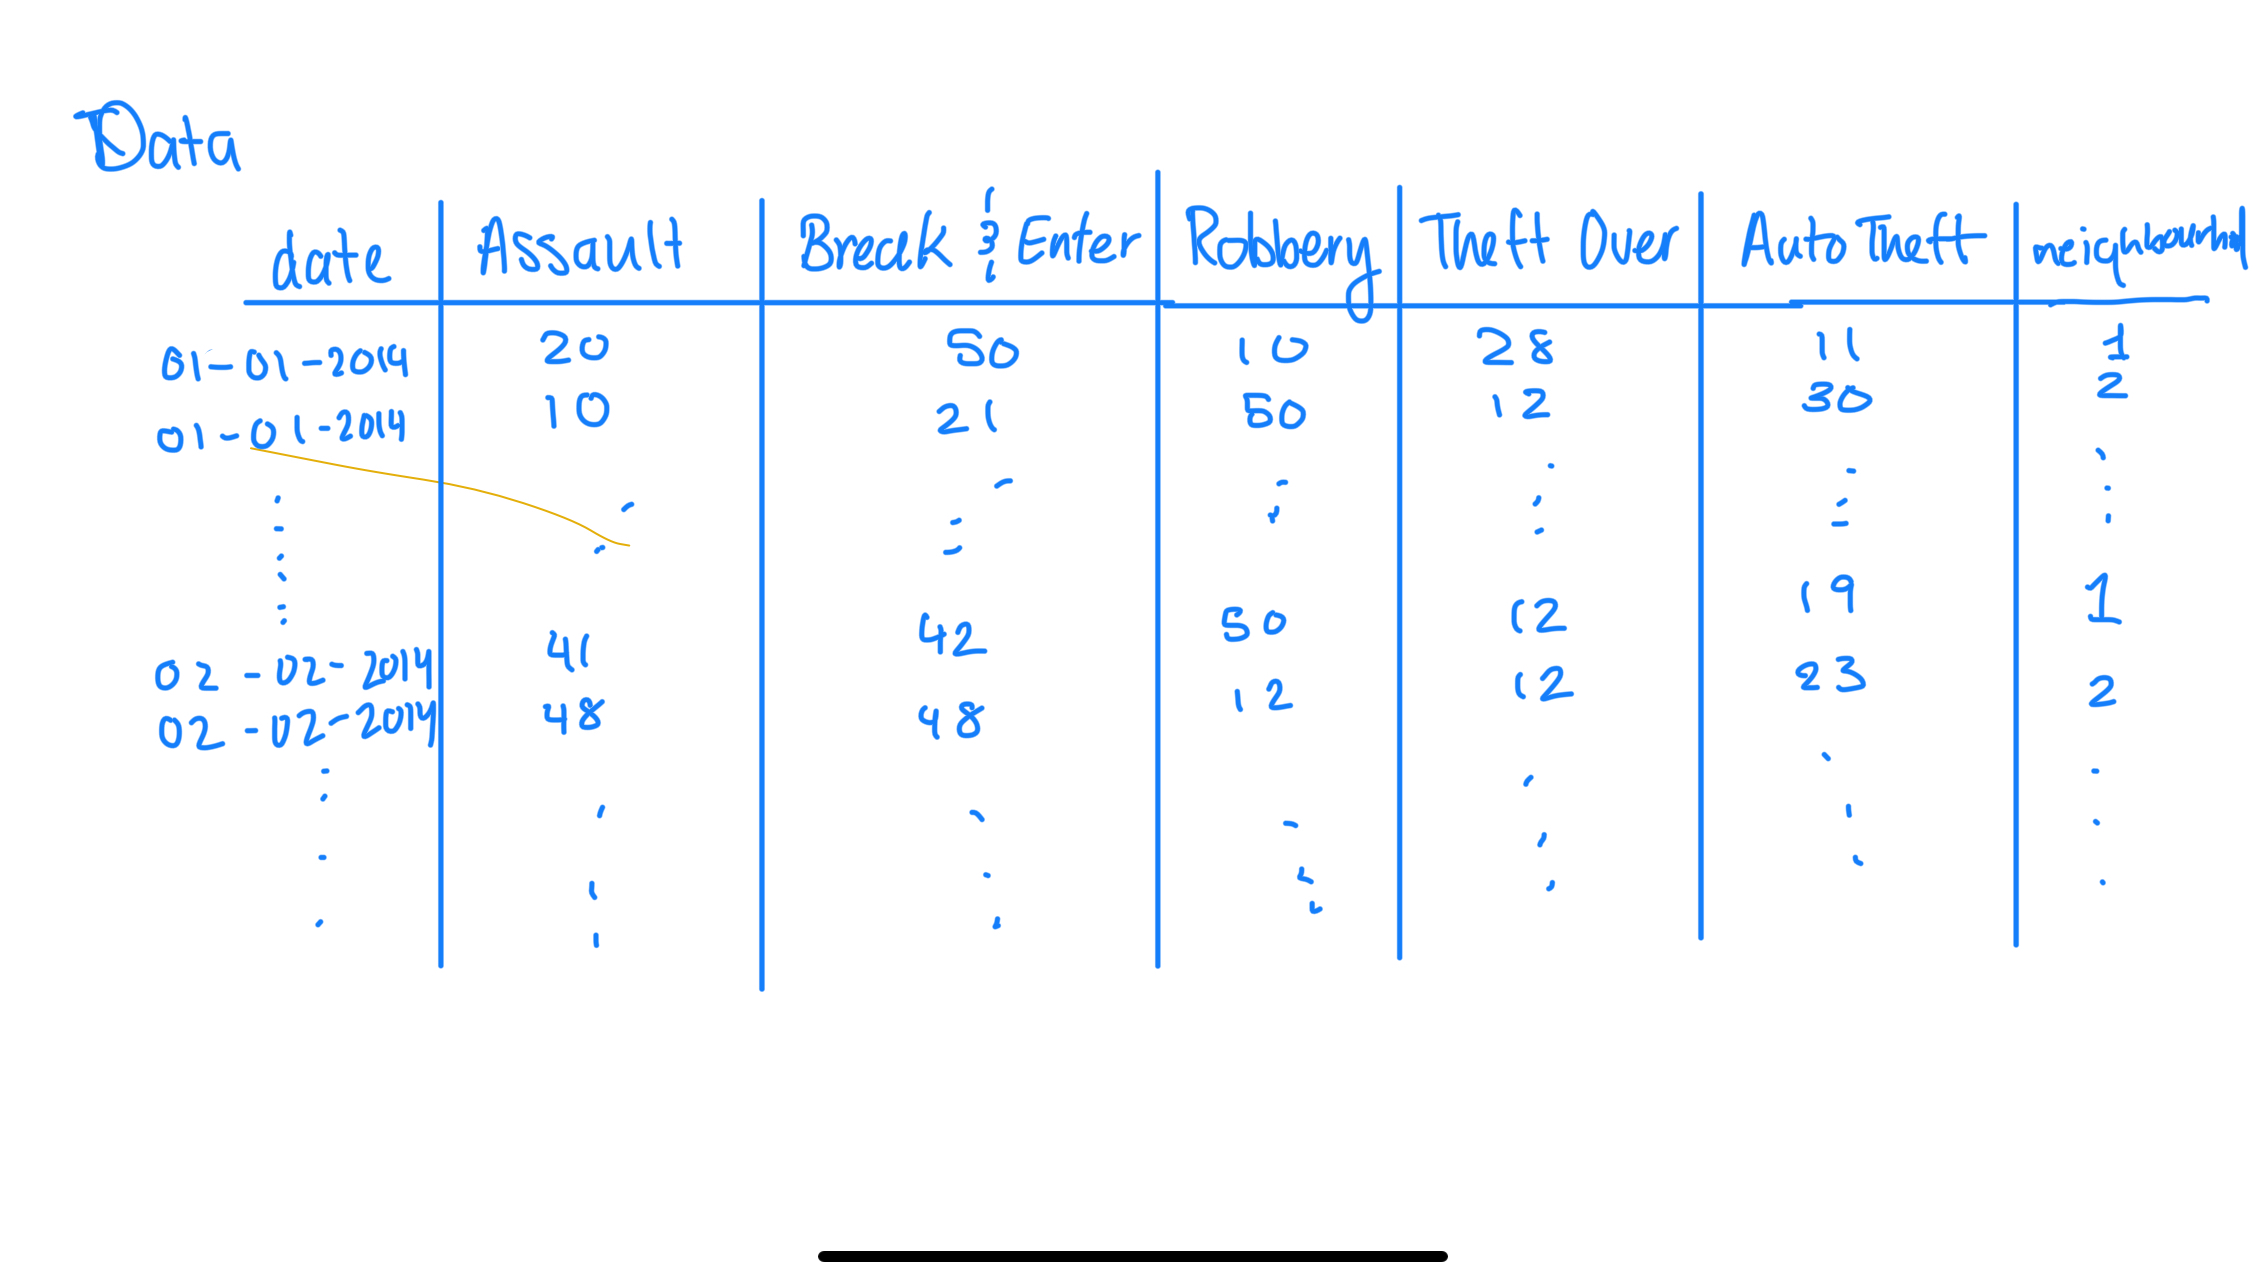 Data
date Assault Break & Enter Robbery Theft Over Auto Theft
01-01-2014 20 50 10 28 11 1
01-01-2014 10 21 50 12 30 2
02-02-2014 41 42 50 12 19 1
02-02-2014 48 48 12 12 23 2